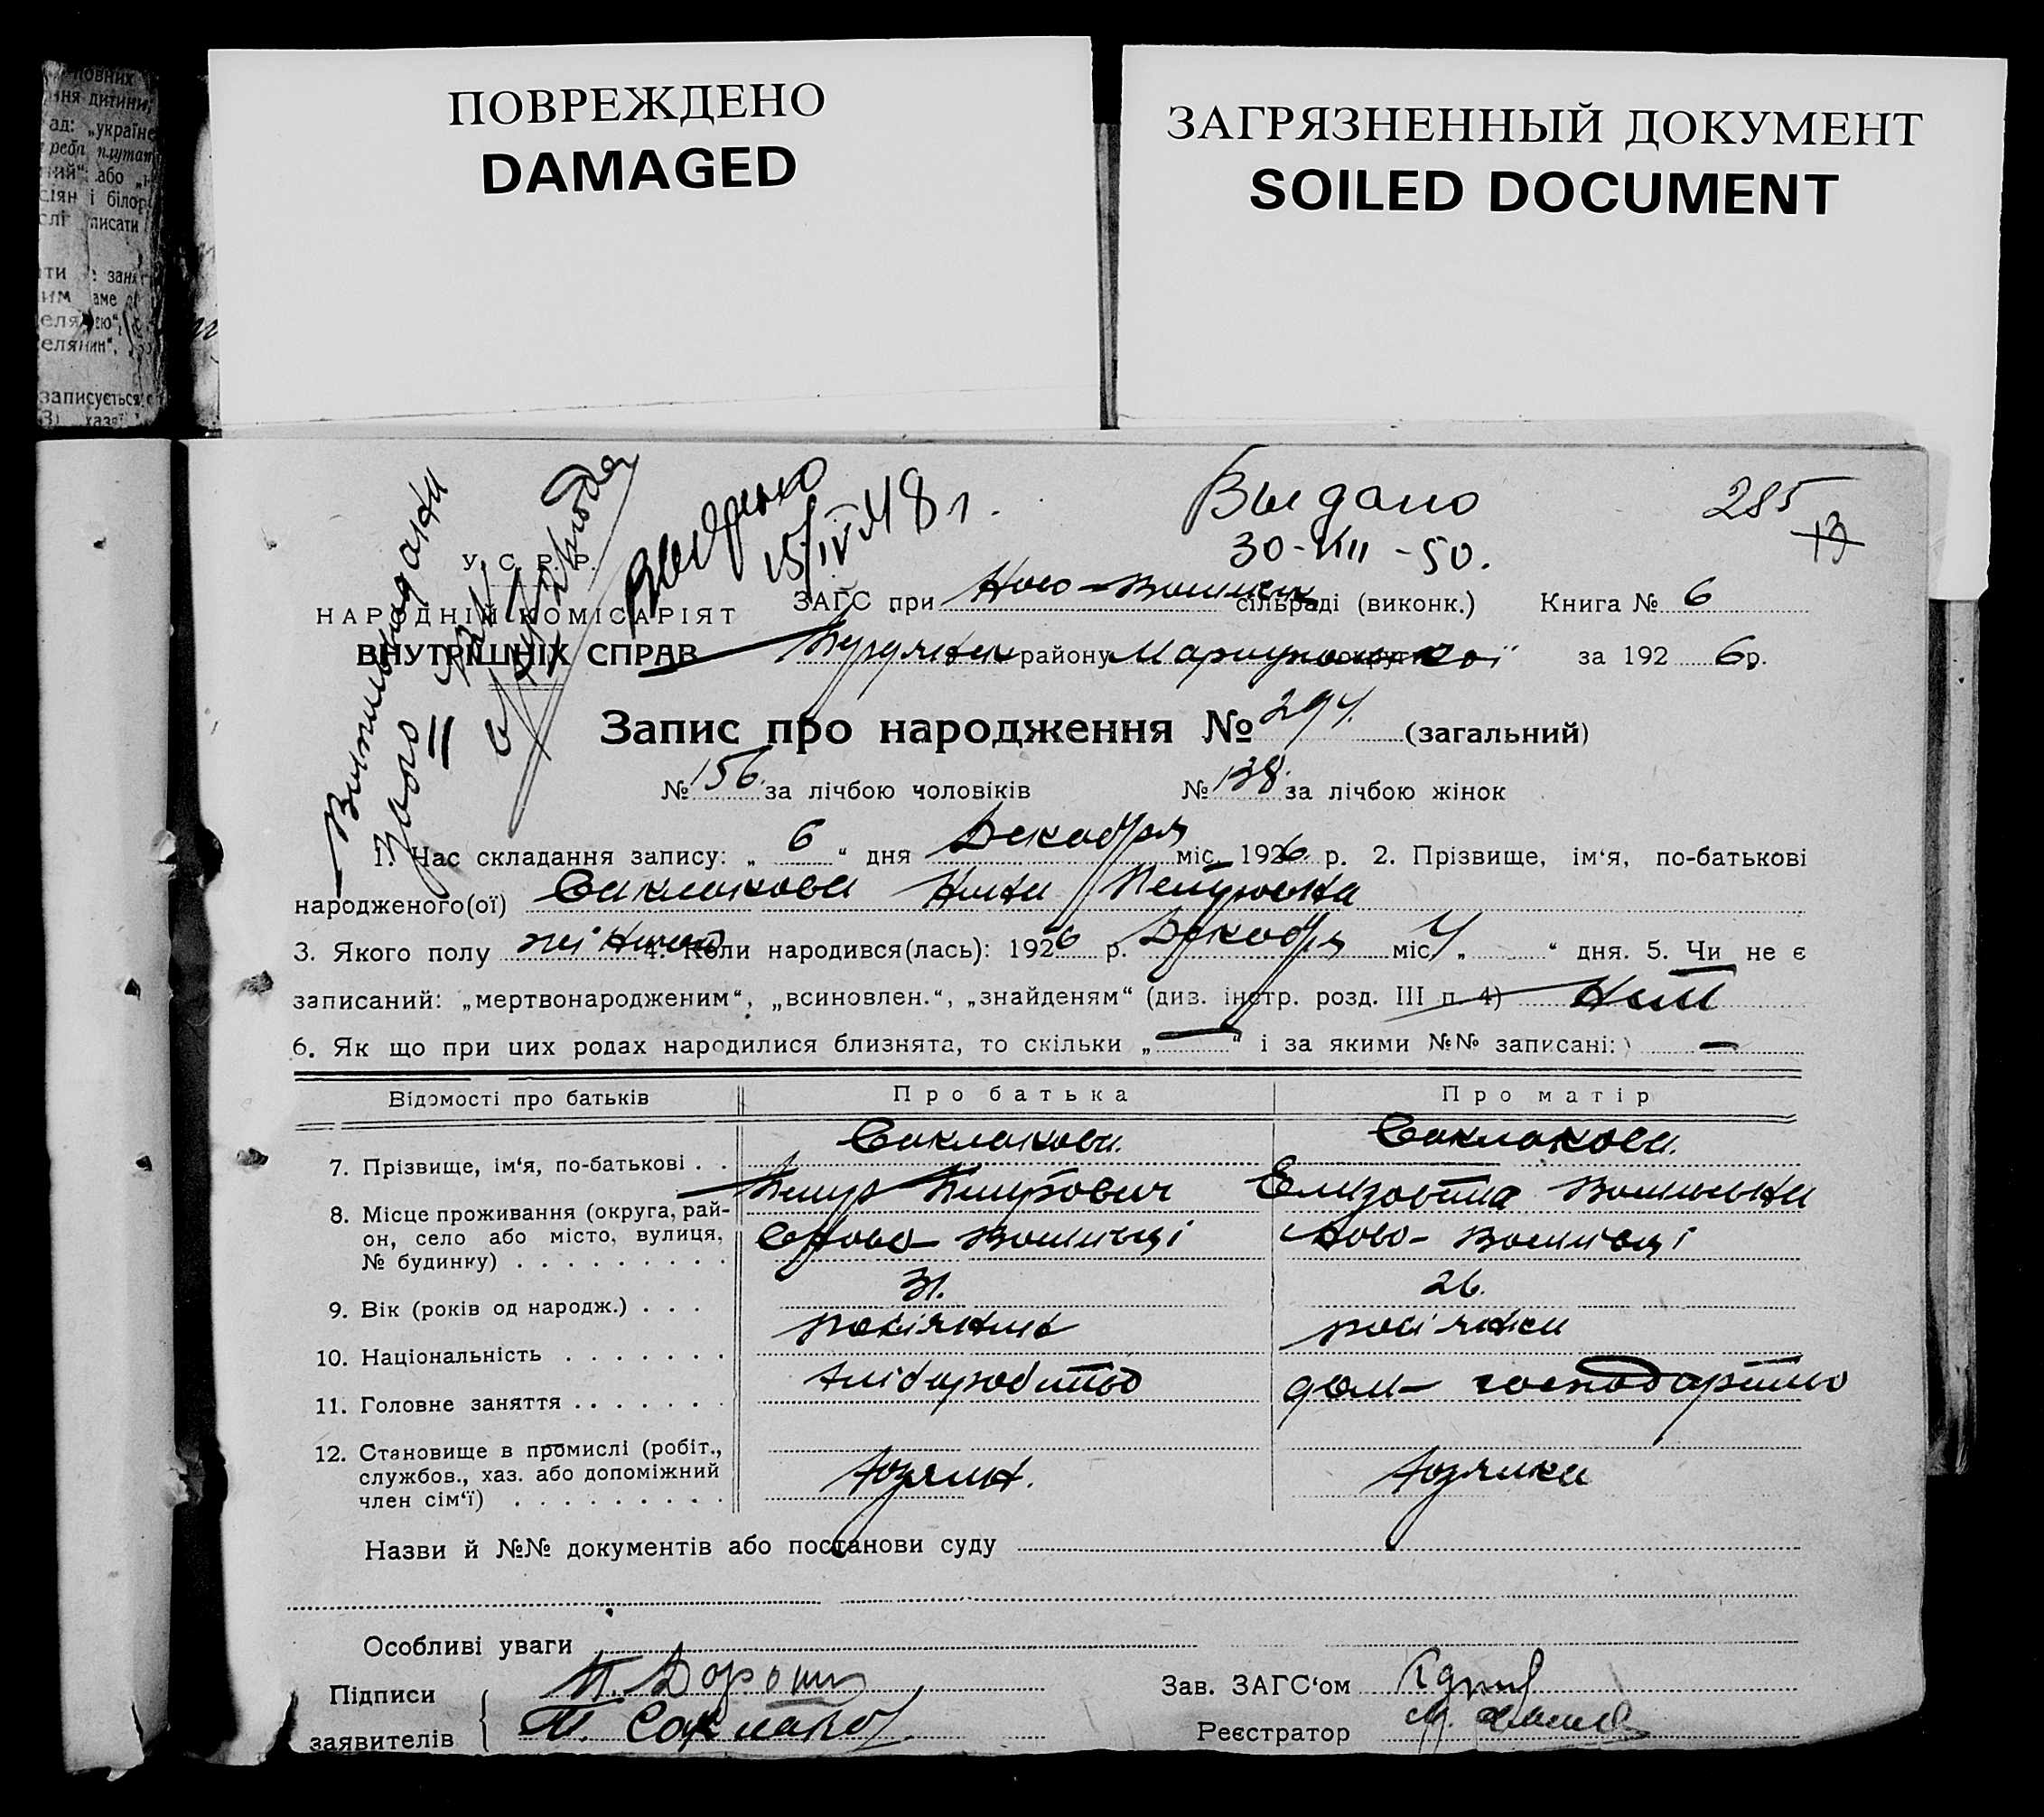 ПОВРЕЖДЕНО
DAMAGED
ЗАГРЯЗНЕННЫЙ ДОКУМЕНТ
SOILED DOCUMENT
повних
ння дитини;
ад: „україне
реба плутат
ний“ або „
сіян і білор
слі писати
записується
Выдано
15/IV 48 г.
Выдано
30-VIII-50.
285
13
У. С. Р. Р.
НАРОДНІЙ КОМІСАРІЯТ
ВНУТРІШНІХ СПРАВ
ЗАГС при Ново-Васильев сільраді (виконк.) Книга № 6
Бердянск району Мариупольскої округи за 1926 р.
Запис про народження № 294. (загальний)
№ 156. за лічбою чоловіків № 138. за лічбою жінок
1. Час складання запису: „ 6 “ дня Декабря міс. 1926 р. 2. Прізвище, ім‘я, по-батькові
народженого(ої) Саклакова Нина Петровна
3. Якого полу жіночого 4. Коли народився(лась): 1926 р. Декабря міс. 4 „ “ дня. 5. Чи не є
записаний: „мертвонародженим“, „всиновлен.“, „знайденям“ (див. інстр. розд. III п. 4) Нет
6. Як що при цих родах народилися близнята, то скільки „ — “ і за якими №№ записані: —
Відомості про батьків Про батька Про матір
7. Прізвище, ім‘я, по-батькові . . Саклакова. Саклакова.
Петр Петрович Елизовета Васильевна
8. Місце проживання (округа, рай-
он, село або місто, вулиця,
№ будинку) . . . . . . . . . С Ново-Васильвці Ново-Васильвці
9. Вік (років од народж.) . . . 31. 26.
10. Національність . . . . . . . росіянин росіянка
11. Головне заняття . . . . . . . хліборобство дом-господарство
12. Становище в промислі (робіт.,
службов., хаз. або допоміжний
член сім‘ї) . . . . . . . . . хозяин. хозяика
Назви й №№ документів або постанови суду
Особливі уваги
Підписи
заявителів
П. Соклаков
Зав. ЗАГС‘ом
Реєстратор